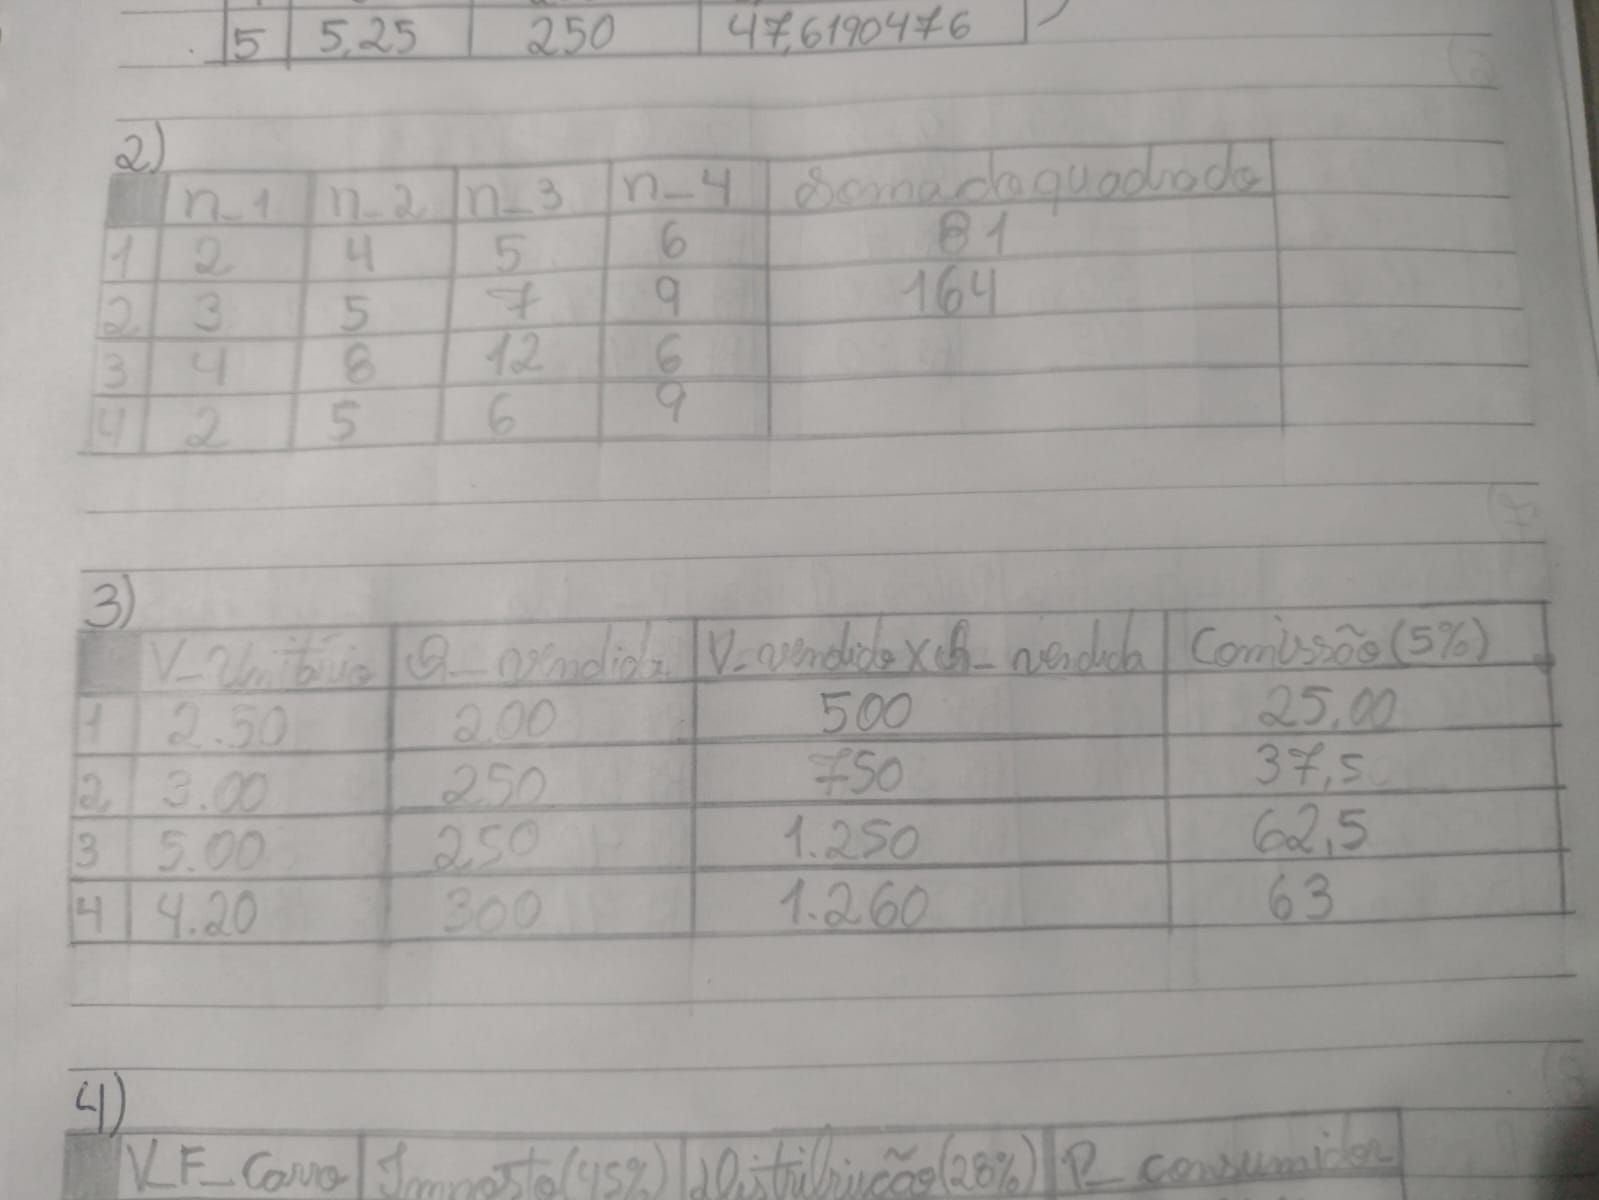 5 5,25 250 47,6190476
2)
n_1 n_2 n_3 n_4 Somadoquadrado
1 2 4 5 6 81
2 3 5 7 9 164
3 4 8 12 6
4 2 5 6 9
3)
V_Unitário Q_vendida V_vendido x Q_vendida Comissão (5%)
1 2.50 200 500 25,00
2 3.00 250 750 37,5
3 5.00 250 1.250 62,5
4 4.20 300 1.260 63
4)
V.F_Carro Imposto (45%) Distribuição (28%) P_consumidor